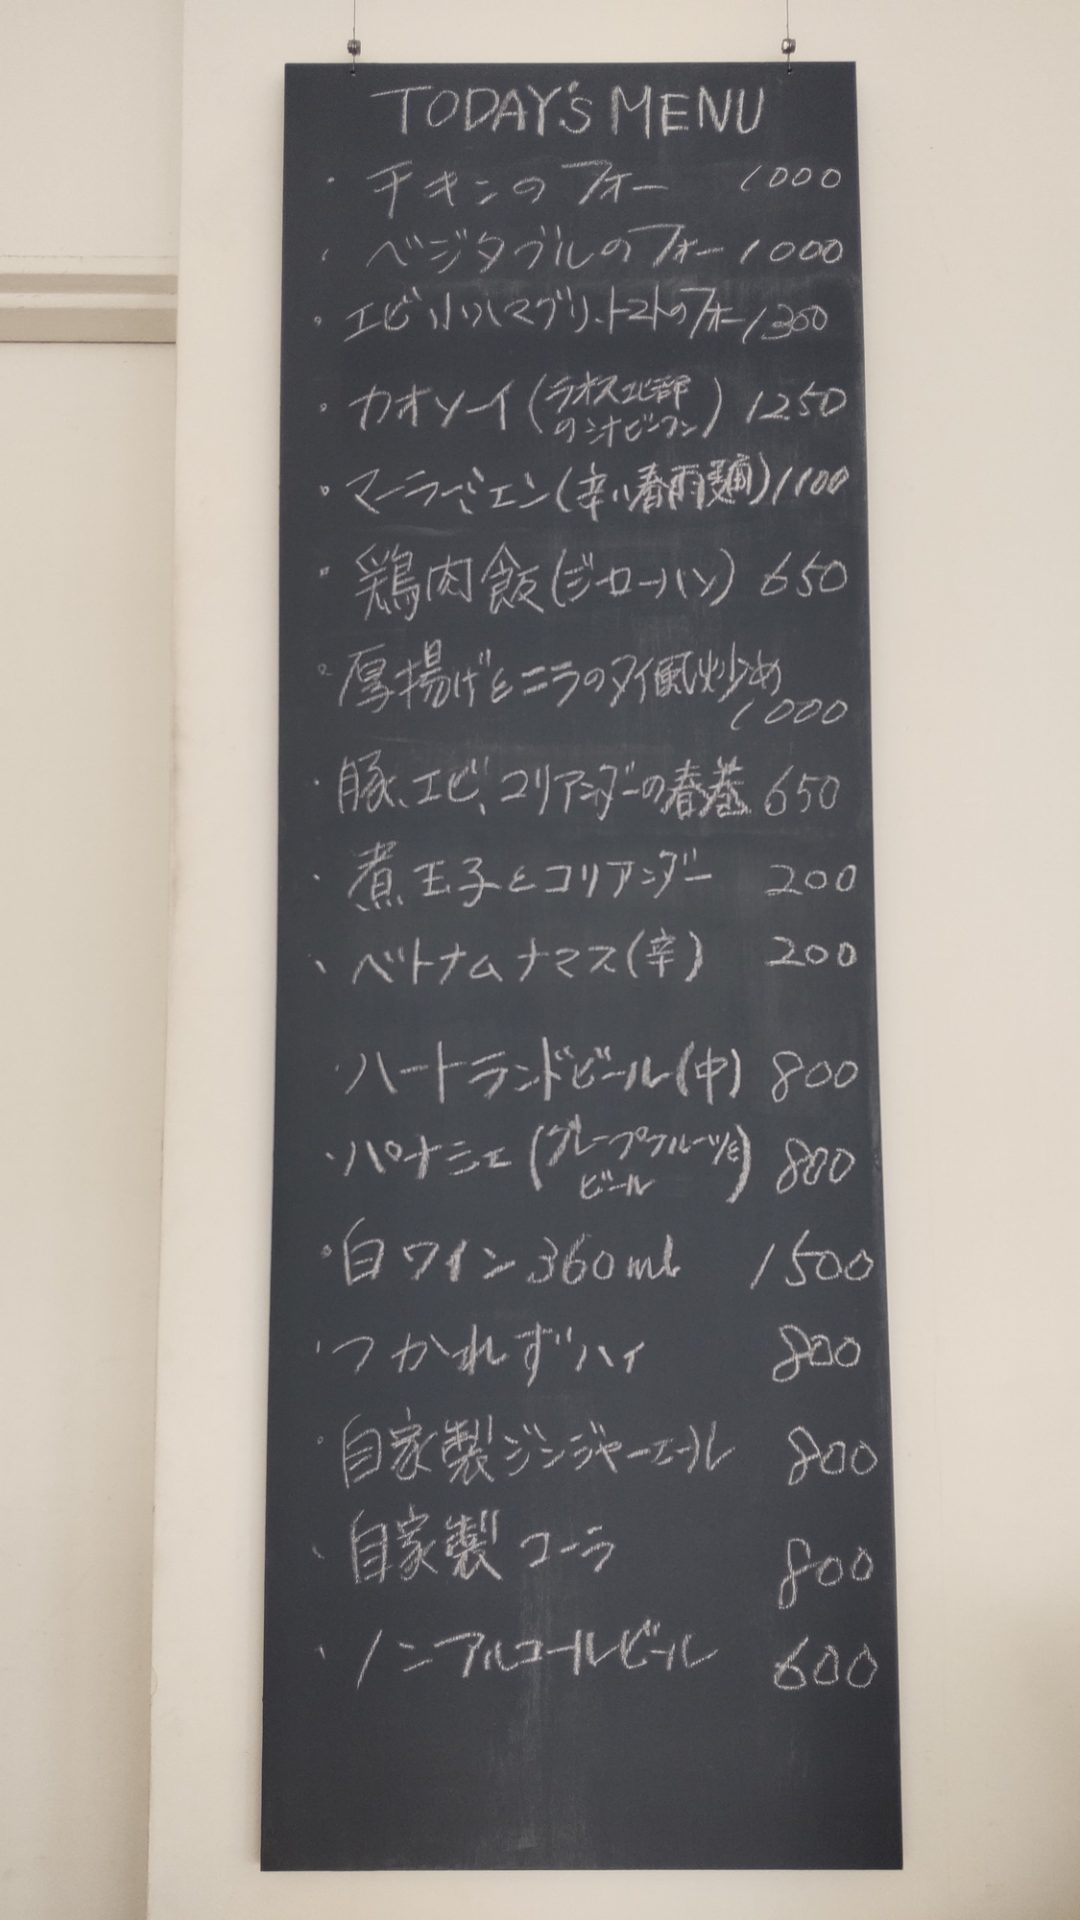 TODAY'S MENU
・チキンのフォー 1000
・ベジタブルのフォー 1000
・エビ、小ハマグリ、トマトのフォー 1300
・カオソーイ(ラオス北部
のシオビーフン) 1250
・マーラーミエン(辛い春雨麺) 1100
・鶏肉飯(ジーローハン) 650
・厚揚げとニラのタイ風炒め
1000
・豚、エビ、コリアンダーの春巻 650
・煮玉子とコリアンダー 200
・ベトナムナマス(辛) 200
・ハートランドビール(中) 800
・パナシェ(グレープフルーツと
ビール) 800
・白ワイン 360ml 1500
・つかれずハイ 800
・自家製ジンジャーエール 800
・自家製コーラ 800
・ノンアルコールビール 600